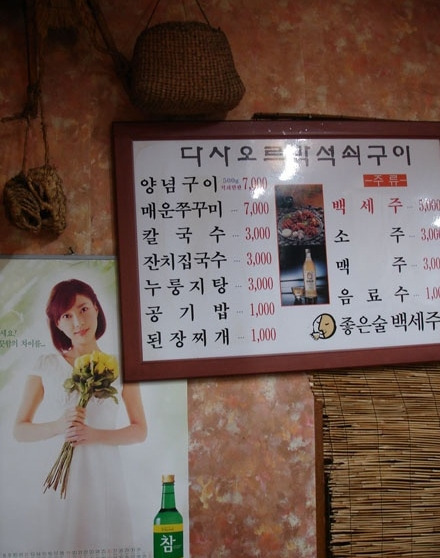 다사오르막석쇠구이
양념구이 500g 7,000
매운쭈꾸미 ... 7,000
칼국수 ... 3,000
잔치집국수 ... 3,000
누룽지탕 ... 3,000
공기밥 ... 1,000
된장찌개 ... 1,000
주류
백세주 ... 5,000
소주 ... 3,000
맥주 ... 3,000
음료수 ... 1,0
좋은술 백세주
세요!
참